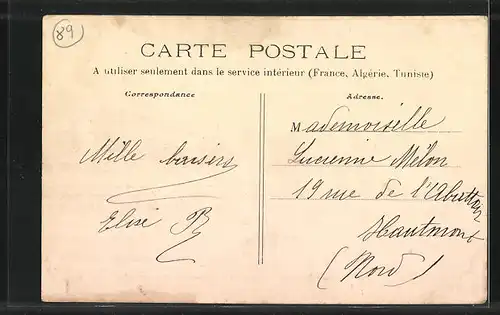 89
CARTE POSTALE
A utiliser seulement dans le service intérieur (France, Algérie, Tunisie)
Correspondance
Mille baisers
Elise R
Adresse.
Mademoiselle
Lucienne Mélon
19 rue de l'Abattoir
Hautmont
(Nord)